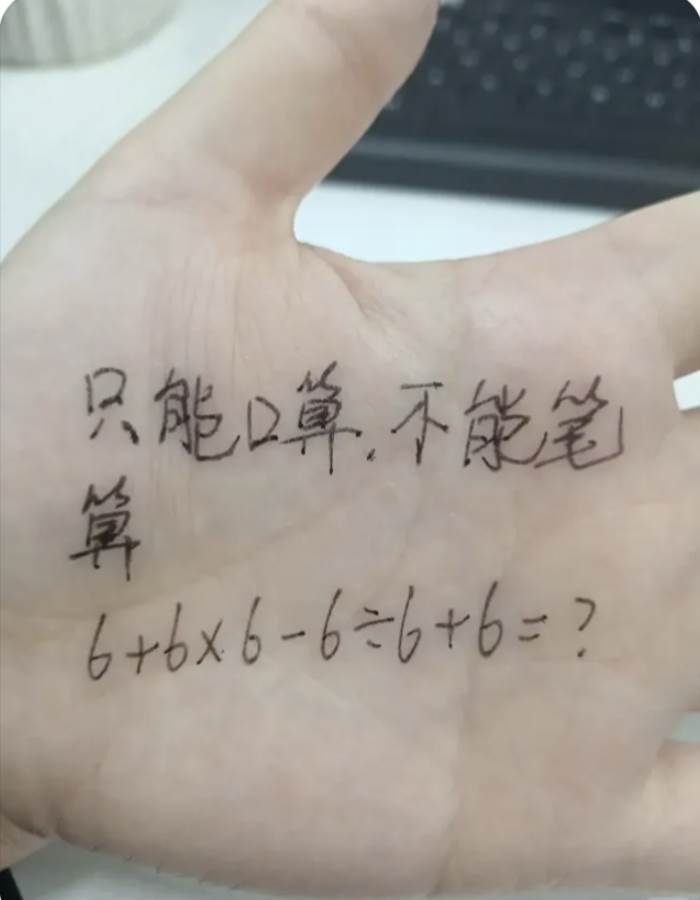 只能口算.不能笔
算
6+6×6-6÷6+6=?